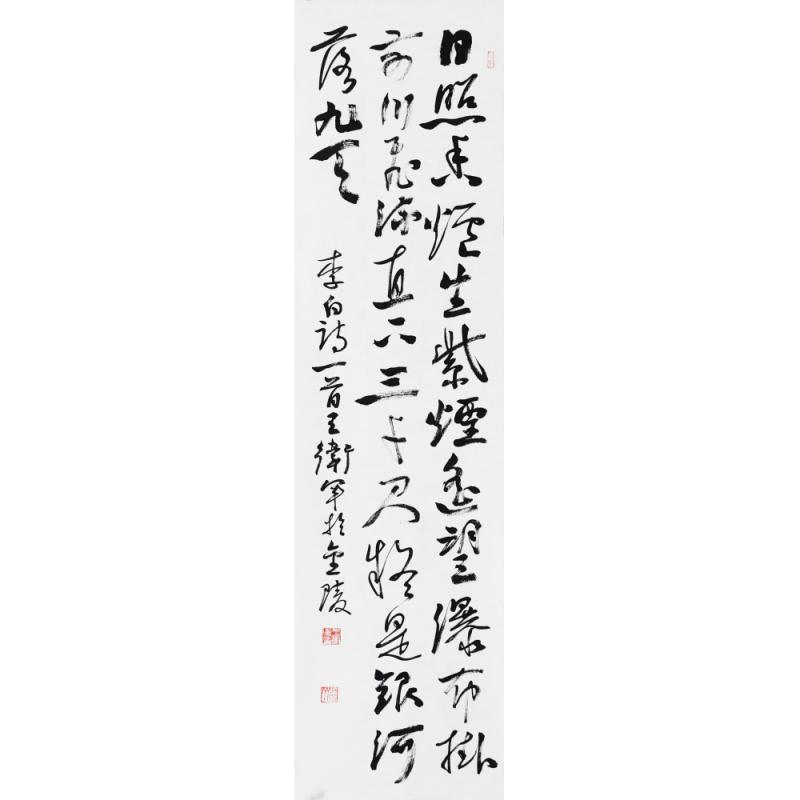 日照香爐生紫煙遙望瀑布掛
前川飛流直下三千尺疑是銀河
落九天
李白詩一首王衛軍於金陵